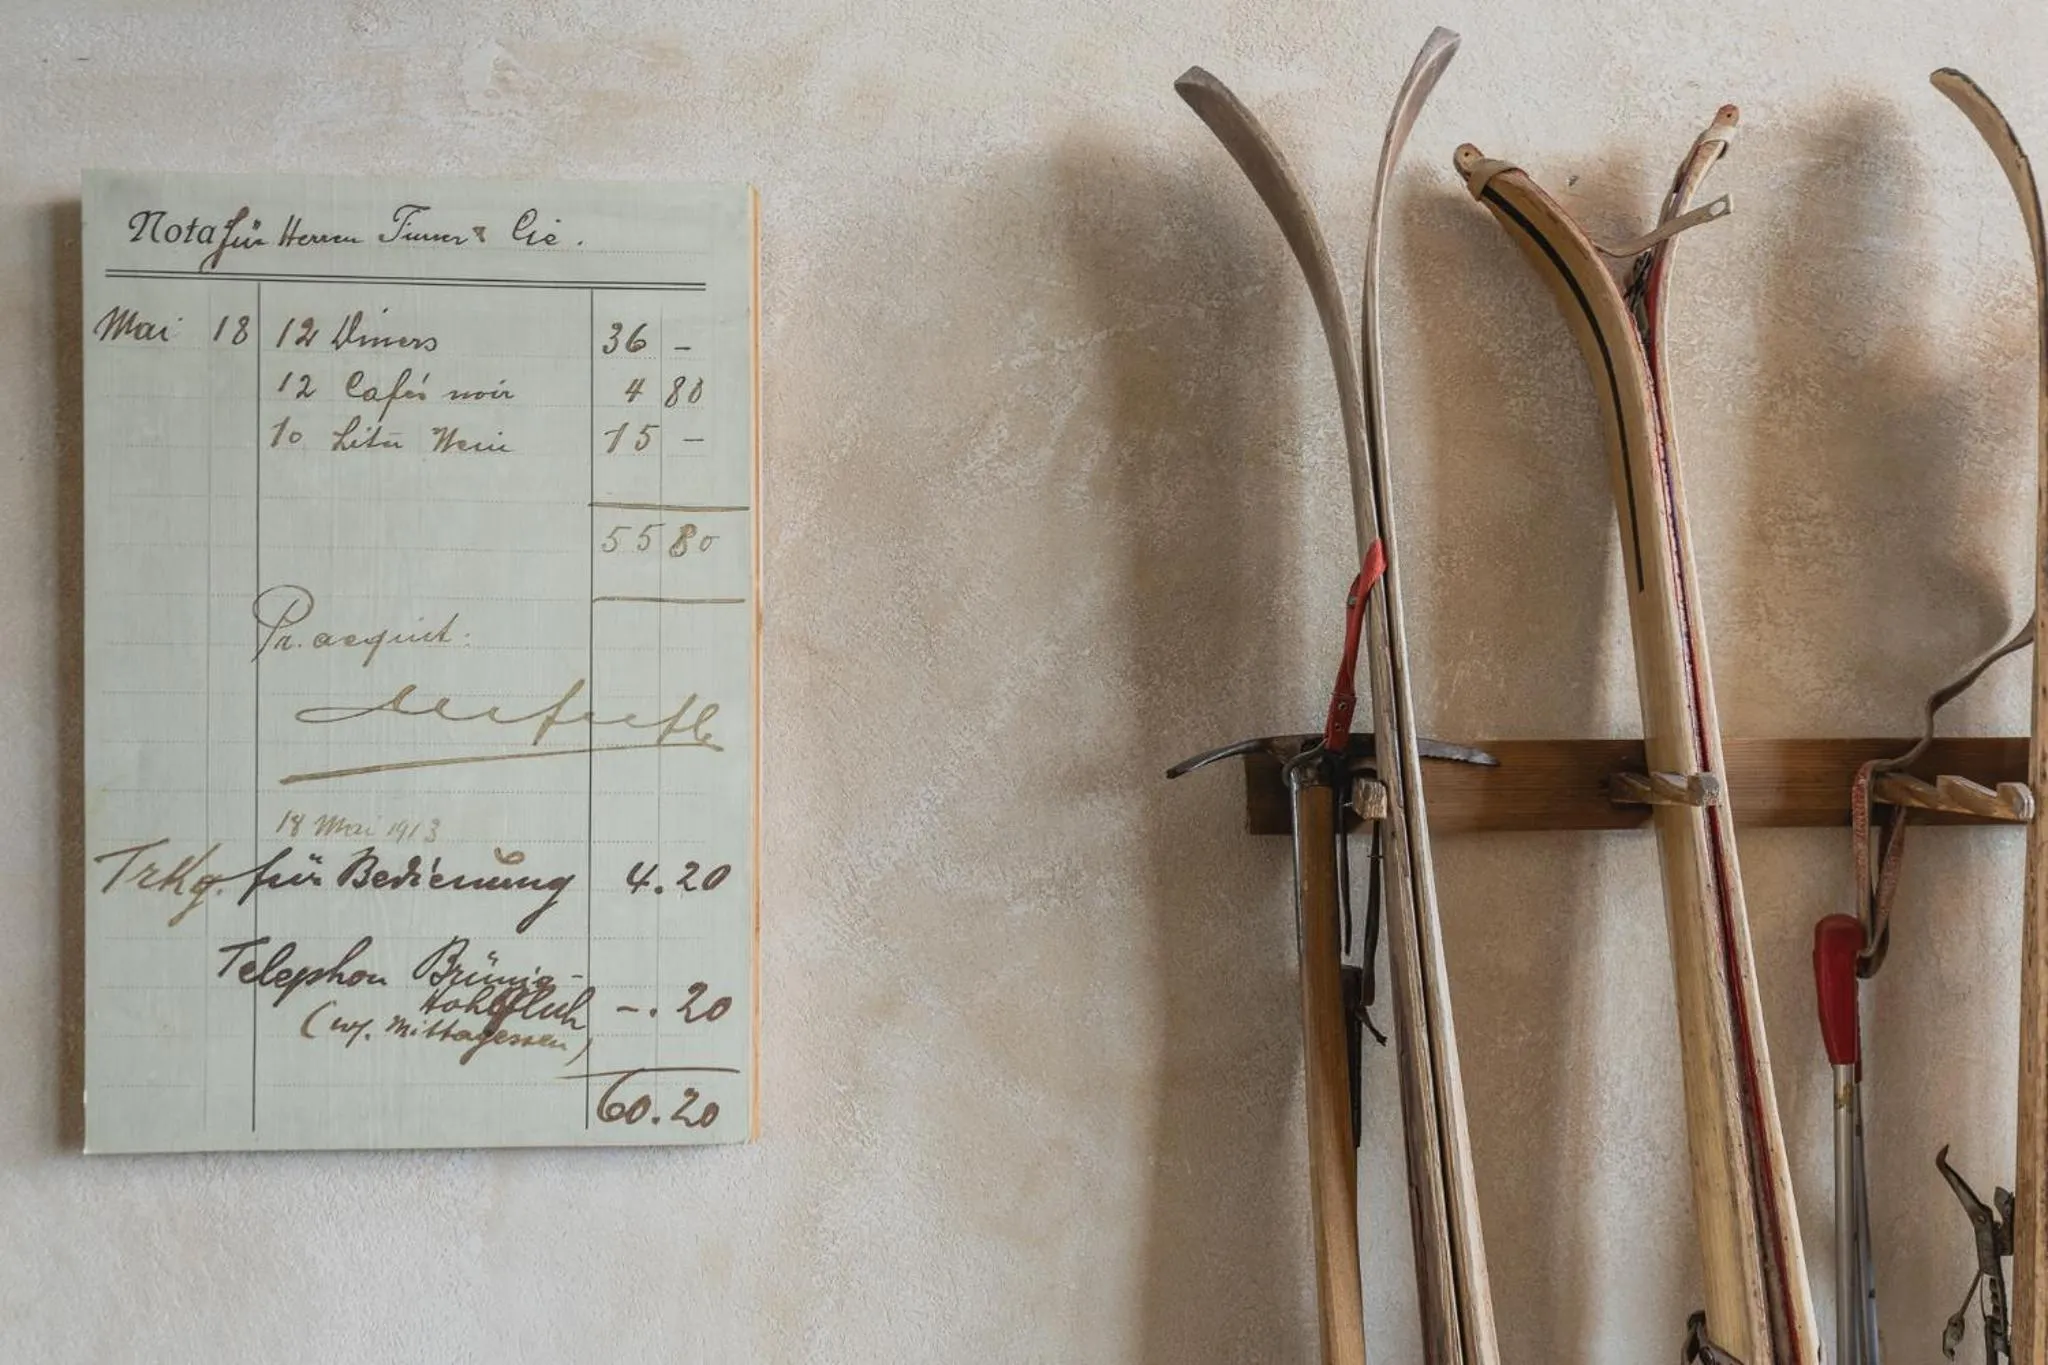 Nota für Herren Furrer & Cie.
Mai 18 12 Diners 36 –
12 Cafés noir 4 80
10 Liter Wein 15 –
55 80
Pr. acquit:
18 Mai 1913
Trkg. für Bedienung 4.20
Telephon Brünig-
Hohfluh –.20
(wg. Mittagessen)
60.20